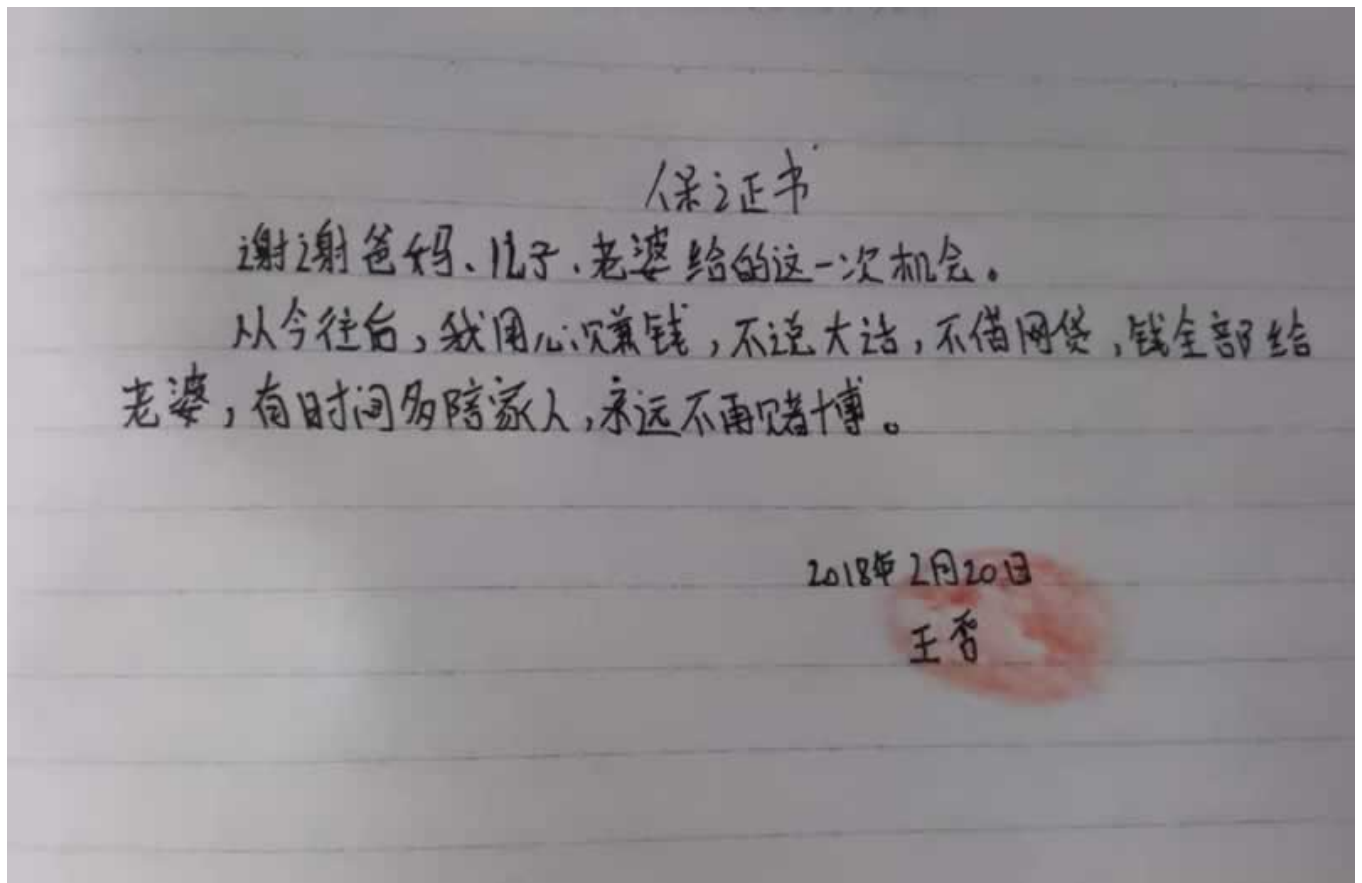 保证书
谢谢爸妈、儿子、老婆给的这一次机会。
从今往后，我用心赚钱，不说大话，不借网贷，钱全部给
老婆，有时间多陪家人，永远不再赌博。
2018年2月20日
王